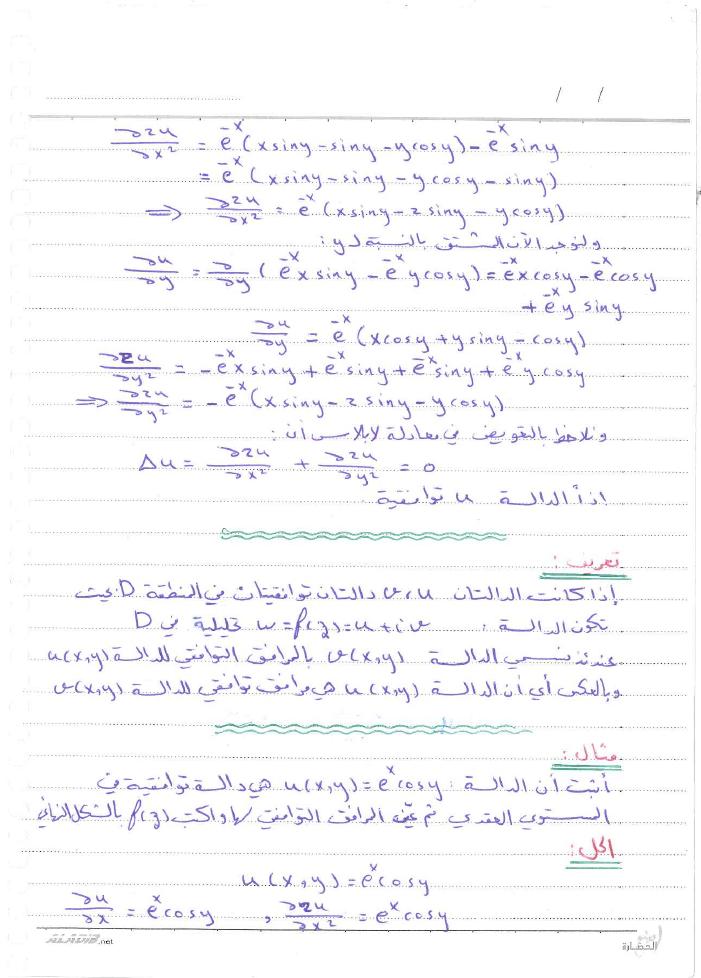 / /
∂2u/∂x² = e^-x (xsiny - siny - ycosy) - e^-x siny
= e^-x (xsiny - siny - ycosy - siny)
⟹ ∂2u/∂x² = e^-x (xsiny - 2siny - ycosy)
ولنوجد الآن المشتق بالنسبة ل y :
∂u/∂y = ∂/∂y (e^-x xsiny - e^-x ycosy) = e^-x xcosy - e^-x cosy
+ e^-x y siny
∂u/∂y = e^-x (xcosy + ysiny - cosy)
∂2u/∂y² = -e^-x xsiny + e^-x siny + e^-x siny + e^-x y cosy
⟹ ∂2u/∂y² = -e^-x (xsiny - 2siny - ycosy)
ونلاحظ بالتعويض في معادلة لابلاس أن :
Δu = ∂2u/∂x² + ∂2u/∂y² = 0
إذاً الدالة u توافقية.
تعريف :
إذا كانت الدالتان u، v دالتان توافقيتان في المنطقة D بحيث
تكون الدالة : w = f(z) = u + iv تحليلية في D
عندئذ نسمي الدالة v(x,y) بالمرافق التوافقي للدالة u(x,y)
وبالعكس أي أن الدالة u(x,y) هي مرافق توافقي للدالة v(x,y)
مثال :
أثبت أن الدالة : u(x,y) = e^x cosy هي دالة توافقية في
المستوي العقدي ثم عيّن المرافق التوافقي لها واكتب f(z) بالشكل النهائي
الحل :
u(x,y) = e^x cosy
∂u/∂x = e^x cosy , ∂2u/∂x² = e^x cosy
.net
الحضارة